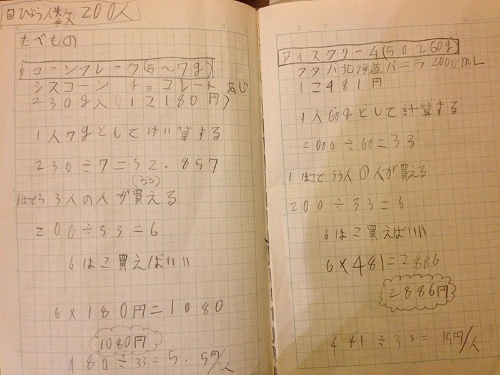 目ひょう人数200人
たべもの
コーンフレーク(5〜7g)
シスコーン チョコレートあじ
230g入(1こ180円)
1人7gとしてけい算する
230÷7=32.857
(33)
1はこで33人の人が買える
200÷33=6
6はこ買えばいい
6×180円=1080
1080円
180÷33=5.5円/人
アイスクリーム(50〜60g)
フタバ北海道バニラ2000mL
1こ481円
1人60gとして計算する
2000÷60=33
1はこで33人の人が買える
200÷33=6
6はこ買えばいい
6×481=2886
2886円
481÷33=15円/人